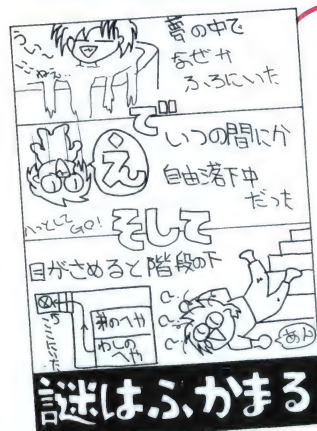 うぃ〜
夢の中で
なぜか
ふろにいた
で
え
いつの間にか
自由落下中
だった
ハッとして
GO!
そして
目がさめると階段の下
弟のへや
わしの
へや
あん
謎はふかまる